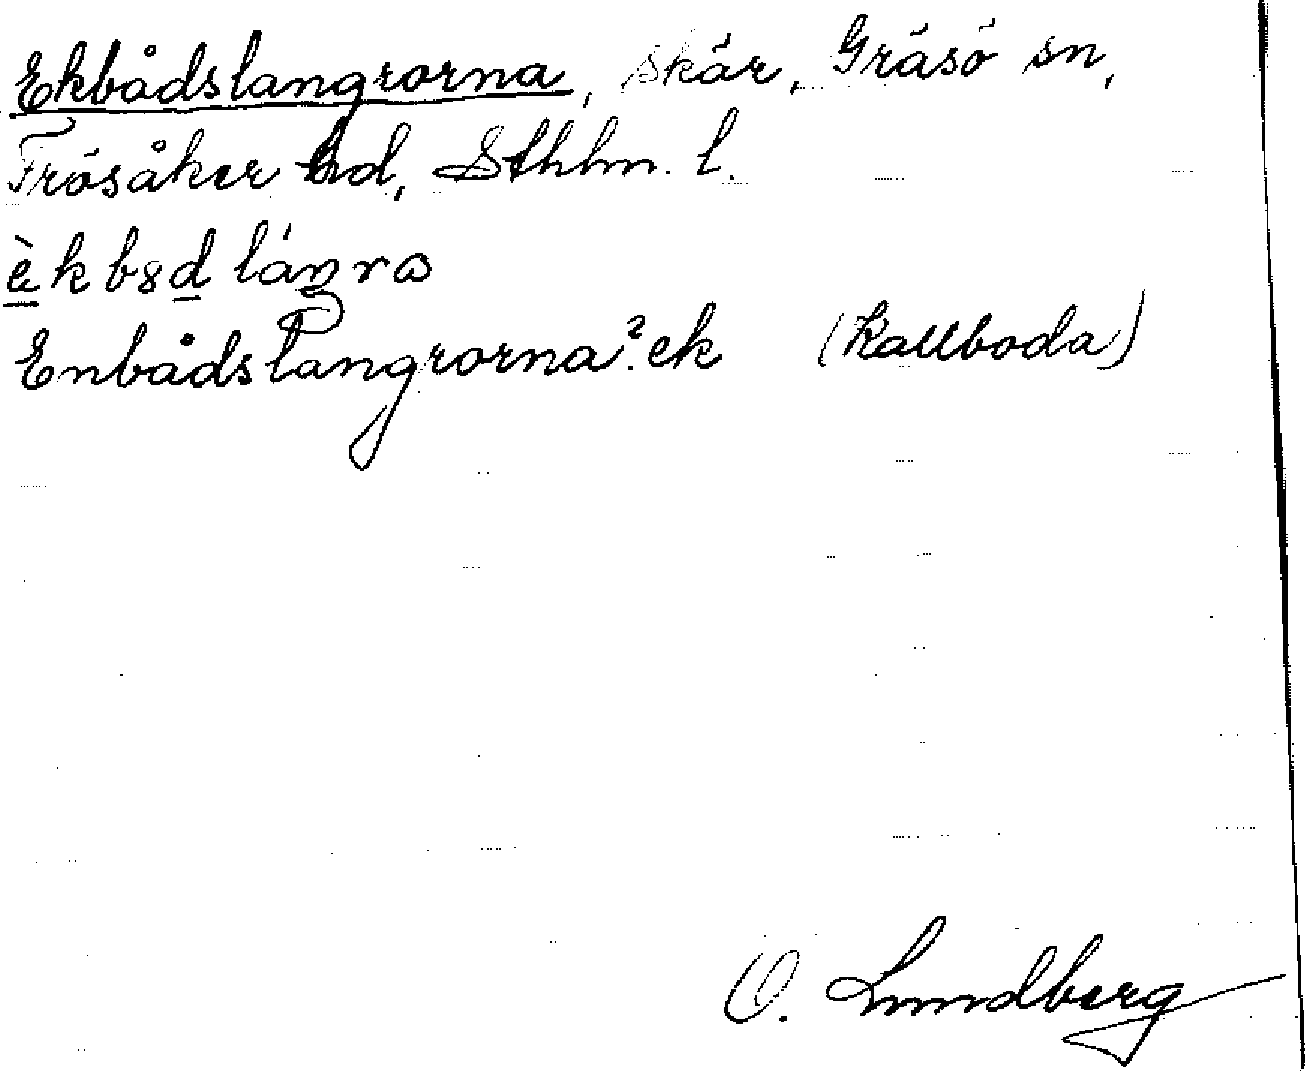 Ekbådslangrorna, skär, Gräsö sn,
Frösåker hd, Sthlm. l.
è k b 8 d láŋ r ɷ
Enbådslangrorna? ek (Kallboda)
O. Lundberg